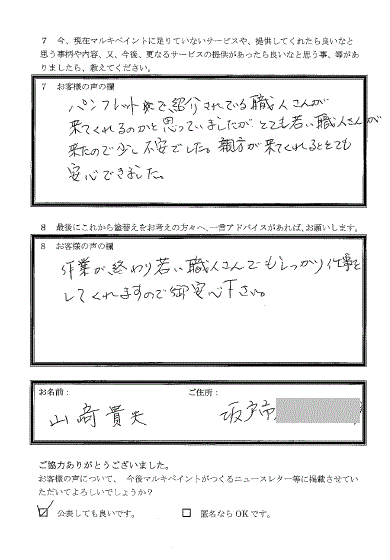 7 今、現在マルキペイントに足りていないサービスや、提供してくれたら良いなと
思う事柄や内容、又、今後、更なるサービスの提供があったら良いなと思う事、等があ
りましたら、教えてください。
7 お客様の声の欄
パンフレット気で紹介されている職人さんが
来てくれるのかと思っていましたが、とても若い職人さんが
来たので少し不安でした。親方が来てくれるととても
安心できました。
8 最後にこれから塗替えをお考えの方々へ、一言アドバイスがあれば、お願いします。
8 お客様の声の欄
作業が終わり若い職人さんでもしっかり仕事を
してくれますので御安心下さい。
お名前: ご住所:
山﨑貴夫 坂戸市
ご協力ありがとうございました。
お客様の声について、今後マルキペイントがつくるニュースレター等に掲載させてい
ただいてよろしいでしょうか?
公表しても良いです。 匿名ならOKです。